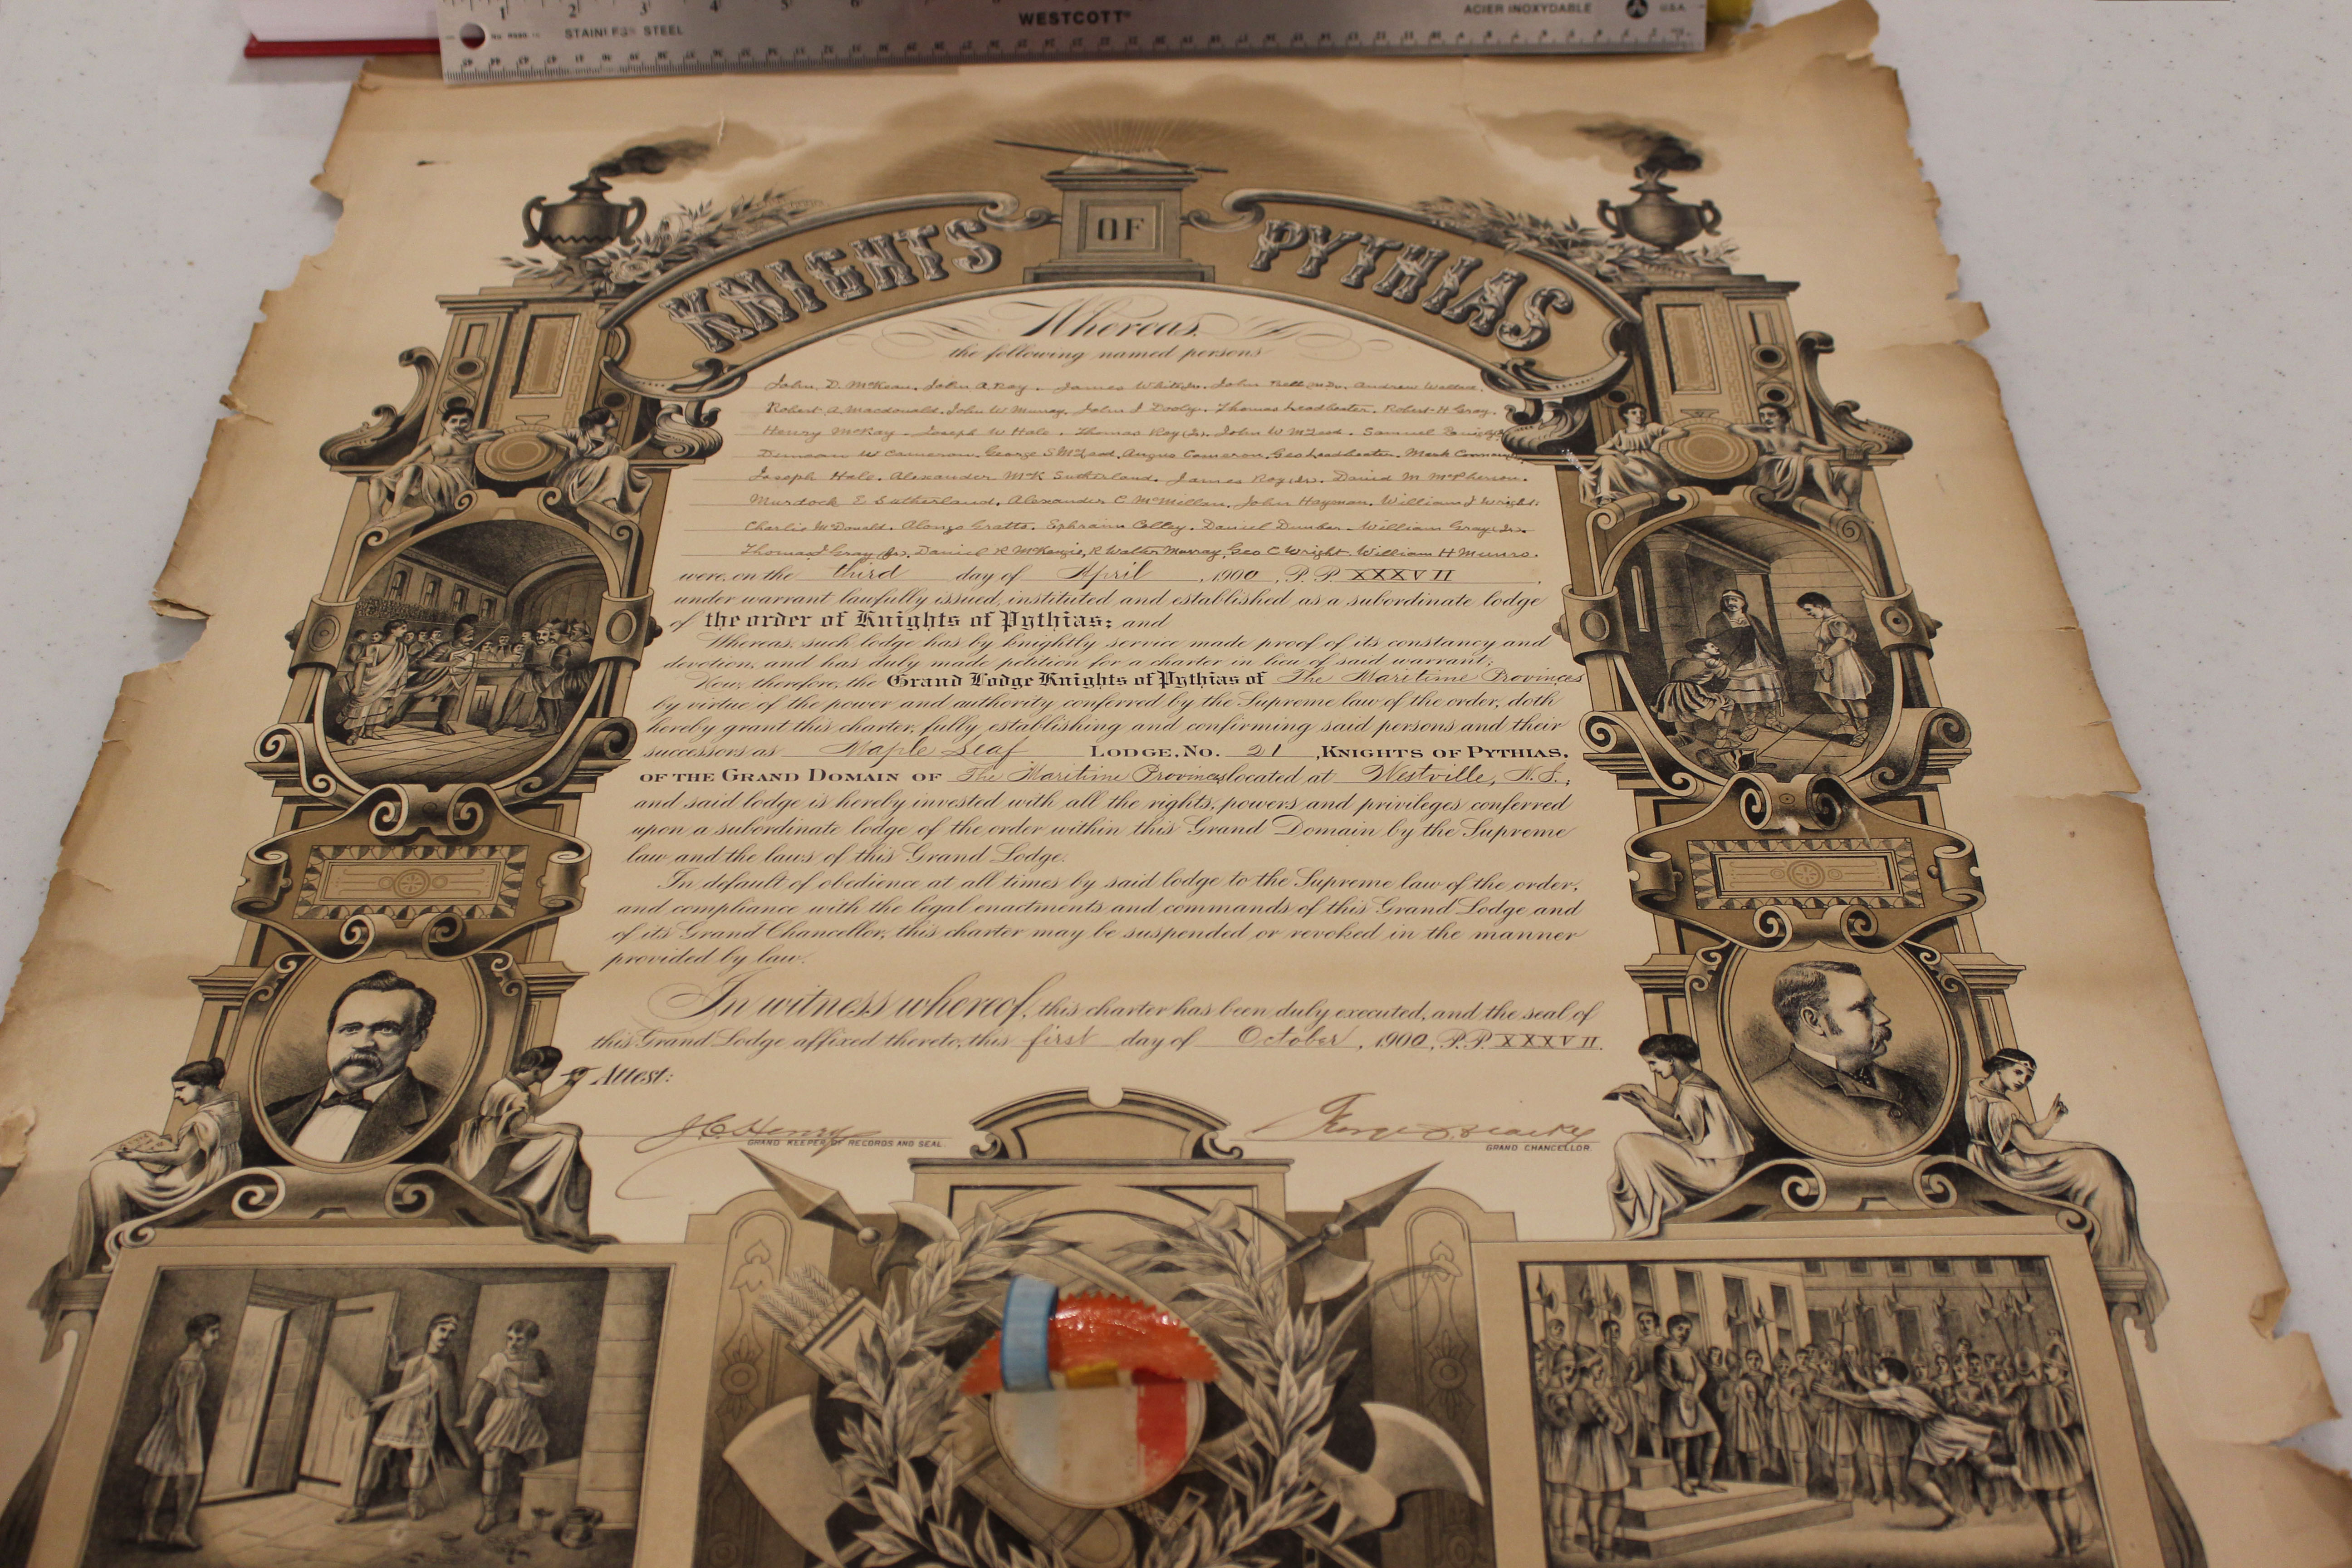 1 2 3 4 5 6
STAINLESS STEEL WESTCOTT® ACIER INOXYDABLE U.S.A.
KNIGHTS OF PYTHIAS
Whereas,
the following named persons
John D. McKean. John A Roy. James White Jr. John Bell Andrew Wallace.
Robert A. Macdonald. John W Murray. John J Dooly. Thomas Leadbeater. Robert H Gray.
Henry McKay. Joseph W Hale. Thomas Roy (Jr). John W McLeod. Samuel
Duncan W Cameron. George S McLeod. Angus Cameron. Geo Leadbeater. Mark
Joseph Hale. Alexander McK Sutherland. James Roy Jr. David M McPherson.
Murdock E Sutherland. Alexander C McMillan. John Hayman. William J Wright.
Charlie McDonald. Alonzo Gratto. Ephraim Colley. Daniel Dunbar. William Gray (Jr).
Thomas J Gray (Jr), Daniel R McKenzie, R Walter Murray, Geo C Wright. William H Munro.
were, on the third day of April, 1900, P. P. XXXVII,
under warrant lawfully issued, instituted and established as a subordinate lodge
of the order of Knights of Pythias; and
Whereas, such lodge has by knightly service made proof of its constancy and
devotion, and has duly made petition for a charter in lieu of said warrant;
Now, therefore, the Grand Lodge Knights of Pythias of The Maritime Provinces
by virtue of the power and authority conferred by the Supreme law of the order, doth
hereby grant this charter, fully establishing and confirming said persons and their
successors as Maple Leaf LODGE, No. 21, KNIGHTS OF PYTHIAS,
OF THE GRAND DOMAIN OF The Maritime Provinces located at Westville, N.S.;
and said lodge is hereby invested with all the rights, powers and privileges conferred
upon a subordinate lodge of the order within this Grand Domain by the Supreme
law and the laws of this Grand Lodge.
In default of obedience at all times by said lodge to the Supreme law of the order,
and compliance with the legal enactments and commands of this Grand Lodge and
of its Grand Chancellor, this charter may be suspended or revoked in the manner
provided by law.
In witness whereof, this charter has been duly executed, and the seal of
this Grand Lodge affixed thereto, this first day of October, 1900, P. P. XXXVII.
Attest:
J C Henry
GRAND KEEPER OF RECORDS AND SEAL.
GRAND CHANCELLOR.